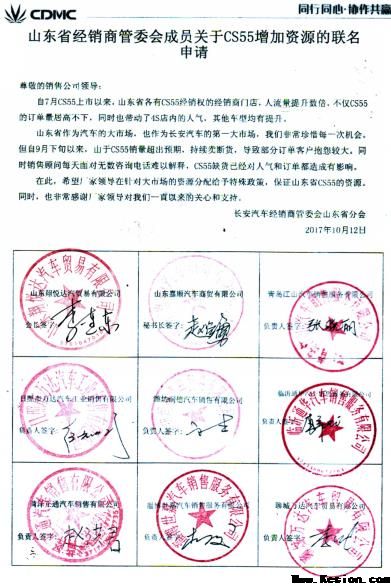 CDMC
同行同心·协作共赢
山东省经销商管委会成员关于CS55增加资源的联名
申请
尊敬的销售公司领导：
自7月CS55上市以来，山东省各有CS55经销权的经销商门店，人流量提升数倍，不仅CS55
的订单量居高不下，同时也带动了4S店内的人气，其他车型均有提升。
山东省作为汽车的大市场，也作为长安汽车的第一大市场，我们非常珍惜每一次机会。
但自9月下旬以来，由于CS55销量超出预期，持续卖断货，导致部分订单客户抱怨较大。同
时销售顾问每天面对无数咨询电话难以解释，CS55缺货已经对人气和订单都造成有影响。
在此，希望厂家领导在针对大市场的资源分配给予特殊政策，保证山东省CS55的资源。
同时，也非常感谢厂领导对我们一直以来的关心和支持。
长安汽车经销商管委会山东省分会
2017年10月12日
山东翔悦达汽贸有限公司 山东嘉顺汽车商贸有限公司 青岛江山汽车销售服务有限公司
会长签字： 秘书长签字： 负责人签字：
日照市万达汽车工业销售有限公司 潍坊润德汽车销售有限公司
负责人签字： 负责人签字： 负责人签字：
菏泽正通汽车销售有限公司 汽车销售服务有限公司 聊城万达汽车贸易有限公司
负责人签字： 负责人签字： 负责人签字：
Www.Xcction.com